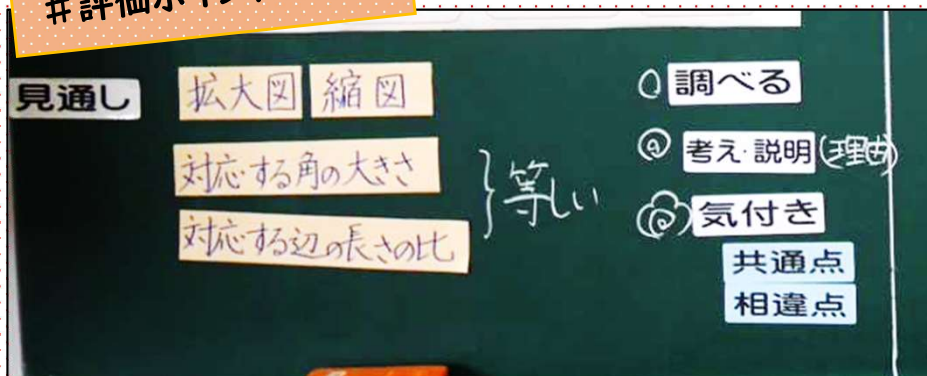 #評価ポイント
見通し
拡大図 縮図
対応する角の大きさ
対応する辺の長さの比
等しい
調べる
考え・説明(理由)
気付き
共通点
相違点